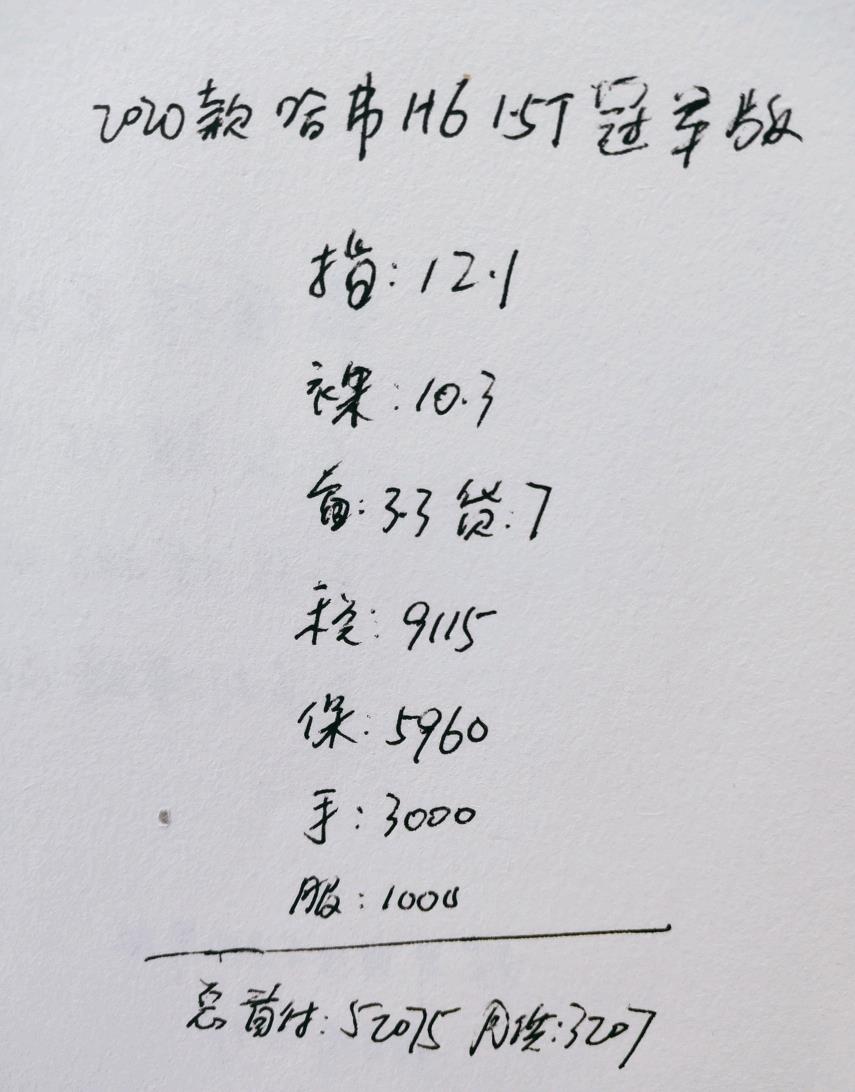 2020款哈弗H6 1.5T冠军版
指:12.1
裸:10.3
首:3.3 贷:7
税:9115
保:5960
手:3000
服:1000
总首付:52075 月供:3207